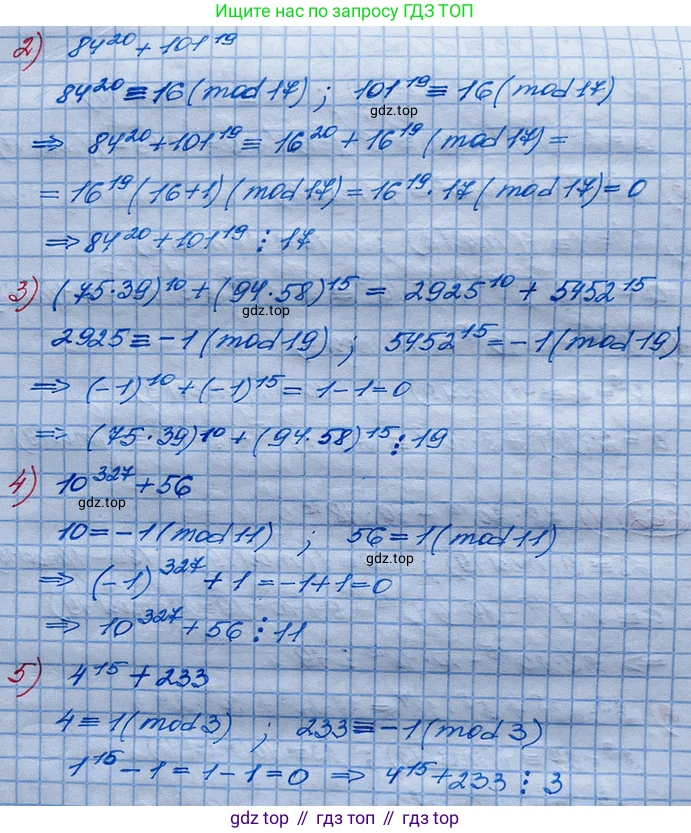 Ищите нас по запросу ГДЗ ТОП
2) 84²⁰ + 101¹⁹
84²⁰ ≡ 16 (mod 17) ; 101¹⁹ ≡ 16 (mod 17)
gdz.top
⇒ 84²⁰ + 101¹⁹ ≡ 16²⁰ + 16¹⁹ (mod 17) =
= 16¹⁹ (16+1) (mod 17) = 16¹⁹ · 17 (mod 17) = 0
⇒ 84²⁰ + 101¹⁹ ⋮ 17
3) (75·39)¹⁰ + (94·58)¹⁵ = 2925¹⁰ + 5452¹⁵
gdz.top
2925 ≡ -1 (mod 19) ; 5452¹⁵ = -1 (mod 19)
⇒ (-1)¹⁰ + (-1)¹⁵ = 1-1=0
⇒ (75·39)¹⁰ + (94·58)¹⁵ ⋮ 19
4) 10³²⁷ + 56
gdz.top
10 = -1 (mod 11) ; 56 = 1 (mod 11)
gdz.top
⇒ (-1)³²⁷ + 1 = -1+1=0
⇒ 10³²⁷ + 56 ⋮ 11
5) 4¹⁵ + 233
4 ≡ 1 (mod 3) ; 233 ≡ -1 (mod 3)
1¹⁵ - 1 = 1-1=0 ⇒ 4¹⁵+233 ⋮ 3
gdz.top // гдз топ // gdz.top // гдз.топ // gdz.top